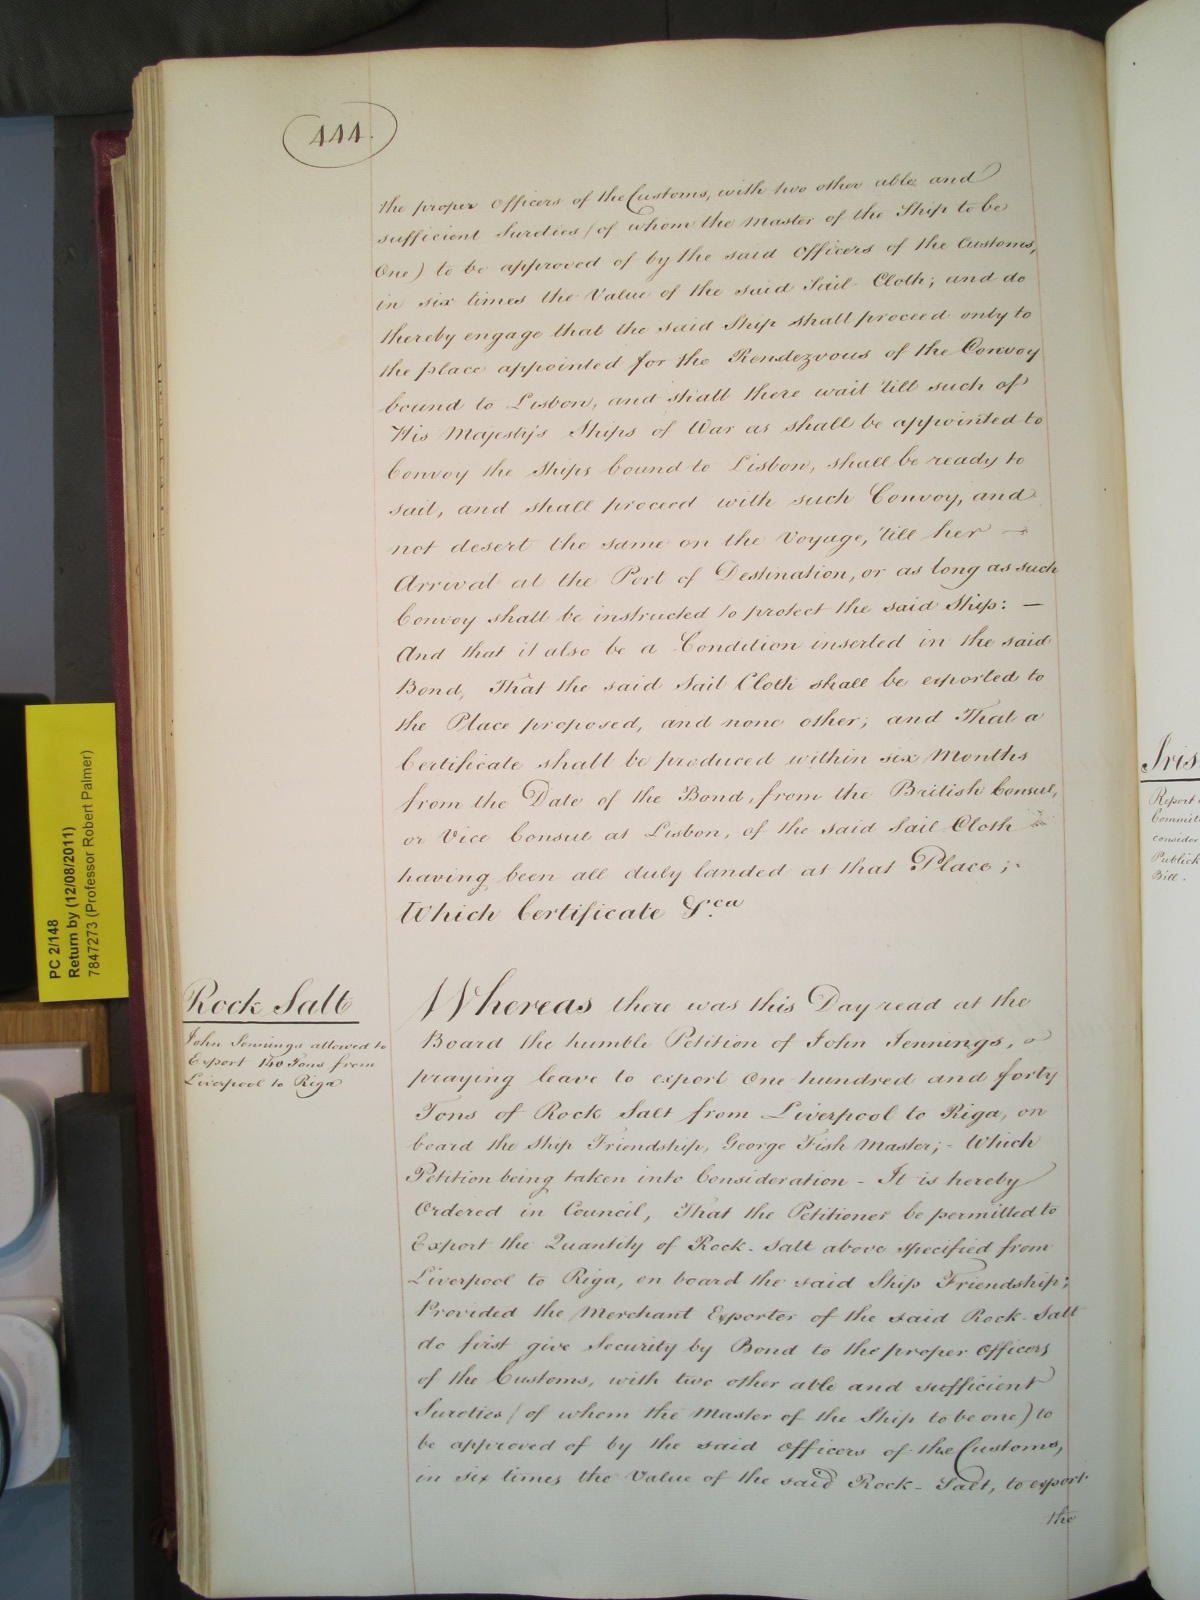 444.
the proper Officers of the Customs, with two other able and
sufficient Sureties (of whom the Master of the Ship to be
One) to be approved of by the said Officers of the Customs,
in six times the Value of the said Sail Cloth; and do
thereby engage that the said Ship shall proceed only to
the place appointed for the Rendezvous of the Convoy
bound to Lisbon, and shall there wait 'till such of
His Majesty's Ships of War as shall be appointed to
Convoy the Ships bound to Lisbon, shall be ready to
sail, and shall proceed with such Convoy, and
not desert the same on the Voyage, 'till her —
Arrival at the Port of Destination, or as long as such
Convoy shall be instructed to protect the said Ship: —
And that it also be a Condition inserted in the said
Bond, That the said Sail Cloth shall be exported to
the Place proposed, and none other; and That a
Certificate shall be produced within six Months
from the Date of the Bond, from the British Consul,
or Vice Consul at Lisbon, of the said Sail Cloth
having been all duly landed at that Place;
Which Certificate &ca
Rock Salt
John Jennings allowed to
Export 140 Tons from
Liverpool to Riga
Whereas there was this Day read at the
Board the humble Petition of John Jennings,
praying leave to export One hundred and forty
Tons of Rock Salt from Liverpool to Riga, on
board the Ship Friendship, George Fish Master; - Which
Petition being taken into Consideration - It is hereby
Ordered in Council, That the Petitioner be permitted to
Export the Quantity of Rock-Salt above specified from
Liverpool to Riga, on board the said Ship Friendship;
Provided the Merchant Exporter of the said Rock-Salt
do first give Security by Bond to the proper Officers
of the Customs, with two other able and sufficient
Sureties (of whom the Master of the Ship to be one) to
be approved of by the said Officers of the Customs,
in six times the Value of the said Rock-Salt, to export
the
PC 2/148
Return by (12/08/2011)
7847273 (Professor Robert Palmer)
Iris
Report
Committ
consider
Publick
Bill.